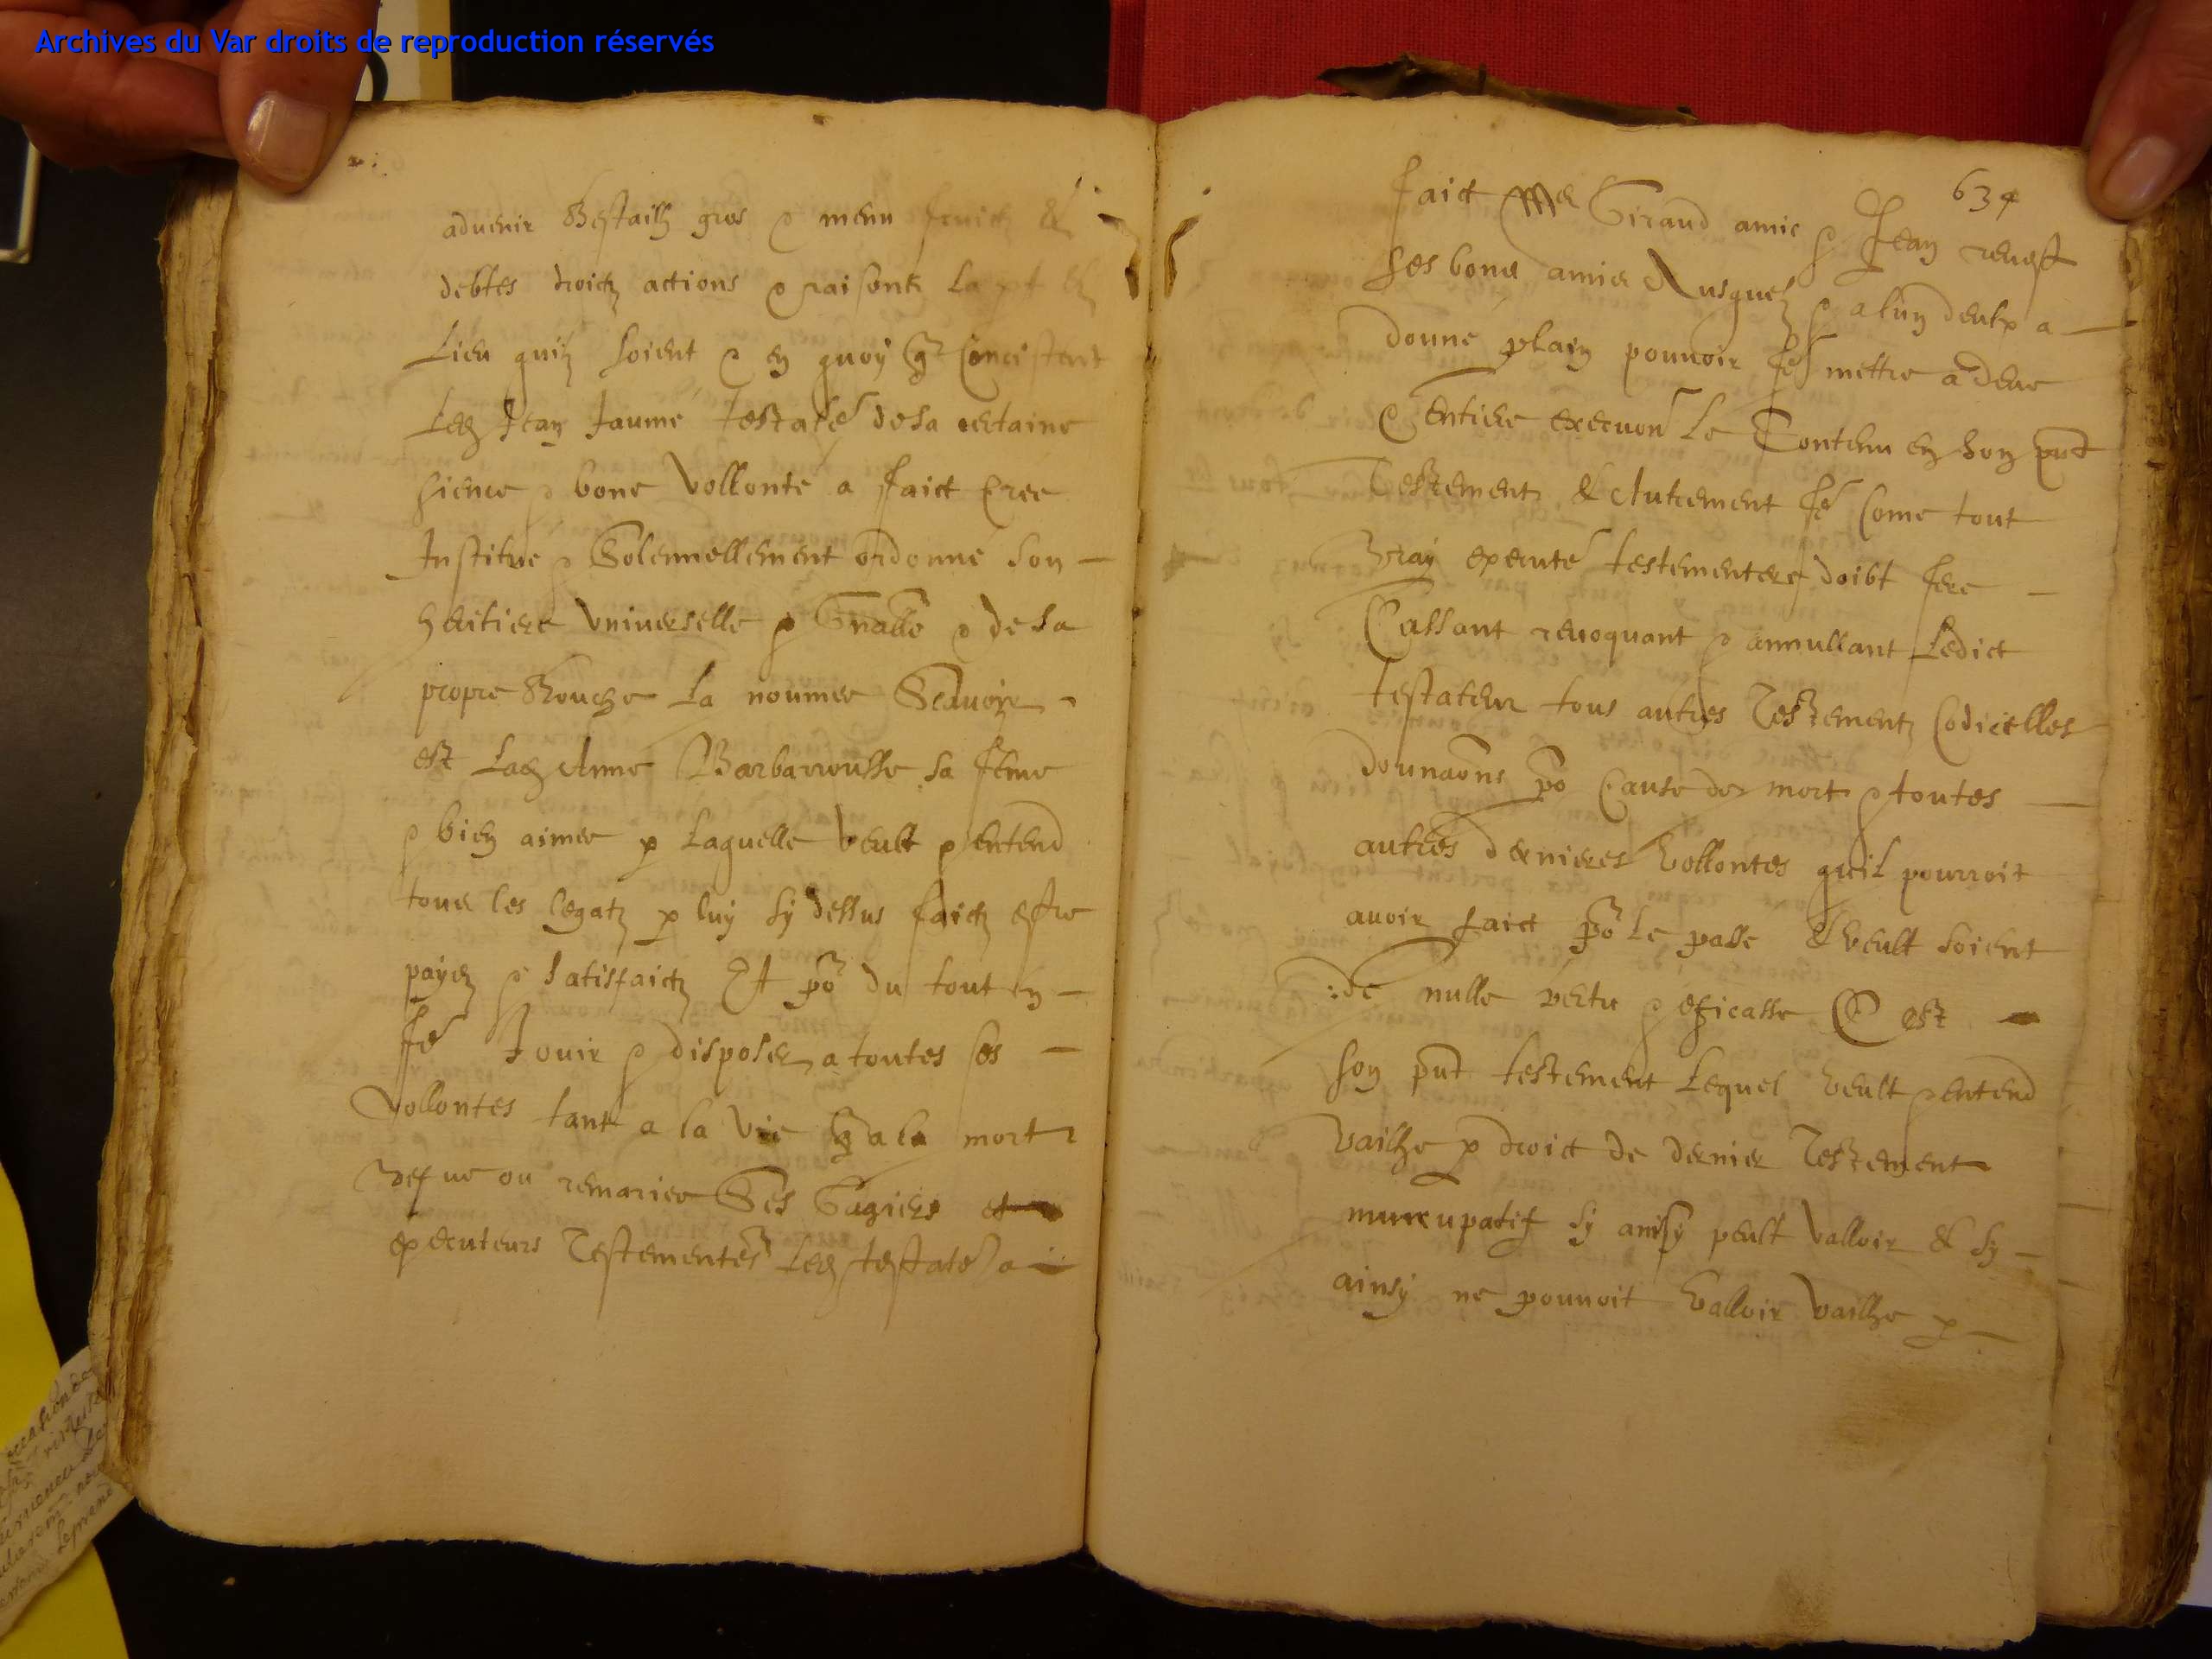 Archives du Var droits de reproduction réservés
advenir Bestailh gros & menu fruictz &
debtes droictz actions & raisons la part &
Lieu quilz soient & en quoy q̃ Concistent
Led Jean Jaume testate de sa certaine
sience & bone Vollonte a faict Cree
Institue & Solennellement ordonné son
heritiere universelle & Gnalle & de sa
propre Bouche la noumee Scavoir
est Lad Anne Barbarrousse sa feme
& bien aimee p laquelle veult & entend
tous les legatz p luy sy dessus faictz estre
payez & satisfaictz Et po du tout en
fe Jouir & disposer a toutes ses
Vollontes tant a la vie q̃ a la mort
vefve ou remariee Ses Gagiers et
executeurs Testementes Led testate a
634
faict Giraud amic & Jean revest
ses bons amis Ausquelz & a lun deulx a
donné plain pouvoir fe mettre a deue
& Entiere execuon le Contenu en son pnt
Testement & Autrement fe Come tout
Vray execute testementere doibt fere
Cassant revoquant & annullant Ledict
testateur tous autres Testementz Codicelles
dounaons po Cause de mort & toutes
autres dernieres vollontes quil pourroit
avoir faict po le passe & veult soient
de nulle vertu & eficasse Et est
son pnt testement Lequel veult & entend
vailhe p droict de dernier Testement
nuncupatif sy ainsy peult valloir & sy
ainsy ne pouvoit valloir vailhe p